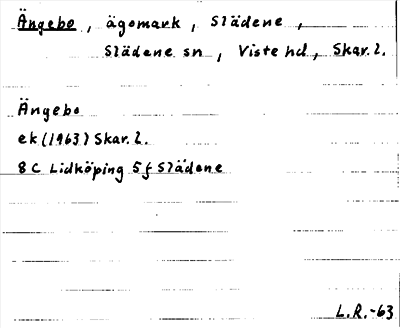 Ängebo, ägomark, Slädene,
Slädene sn, Viste hd, Skar.l.
Ängebo
ek (1963) Skar.l.
8C Lidköping 5f Slädene
L.R.-63